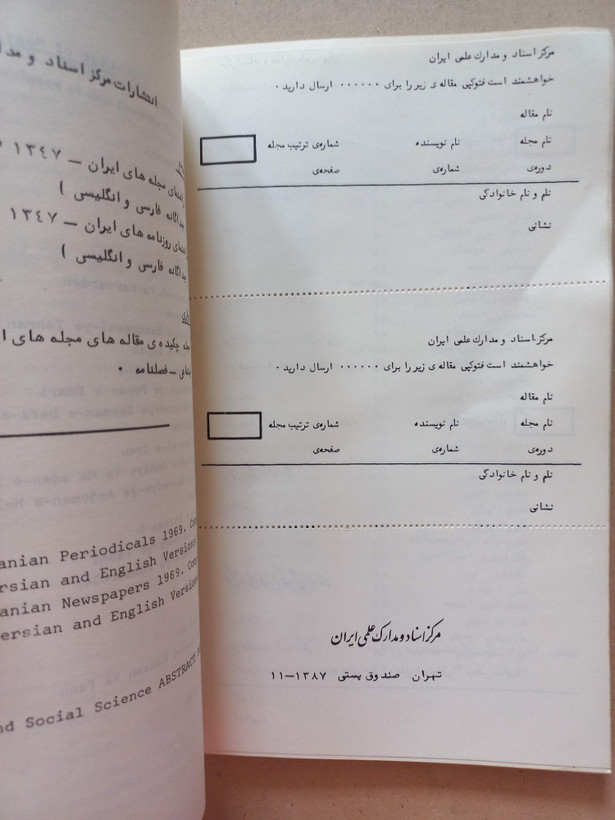 مرکز اسناد و مدارک علمی ایران
خواهشمند است فتوکپی مقاله ی زیر را برای ۰۰۰۰۰۰ ارسال دارید ۰
نام مقاله
نام مجله نام نویسنده شماره‌ی ترتیب مجله
دوره‌ی شماره‌ی صفحه‌ی
نام و نام خانوادگی
نشانی
مرکز اسناد و مدارک علمی ایران
خواهشمند است فتوکپی مقاله ی زیر را برای ۰۰۰۰۰۰ ارسال دارید ۰
نام مقاله
نام مجله نام نویسنده شماره‌ی ترتیب مجله
دوره‌ی شماره‌ی صفحه‌ی
نام و نام خانوادگی
نشانی
مرکز اسناد و مدارک علمی ایران
تهران صندوق پستی ۱۳۸۷–۱۱
انتشارات مرکز اسناد و
مجله های ایران – ۱۳۴۷
جداگانه فارسی و انگلیسی )
روزنامه های ایران – ۱۳۴۷
جداگانه فارسی و انگلیسی )
چکیده ی مقاله های مجله های
– فصلنامه ۰
Periodicals 1969.
and English
Newspapers 1969.
and English
Social Science ABSTRACT